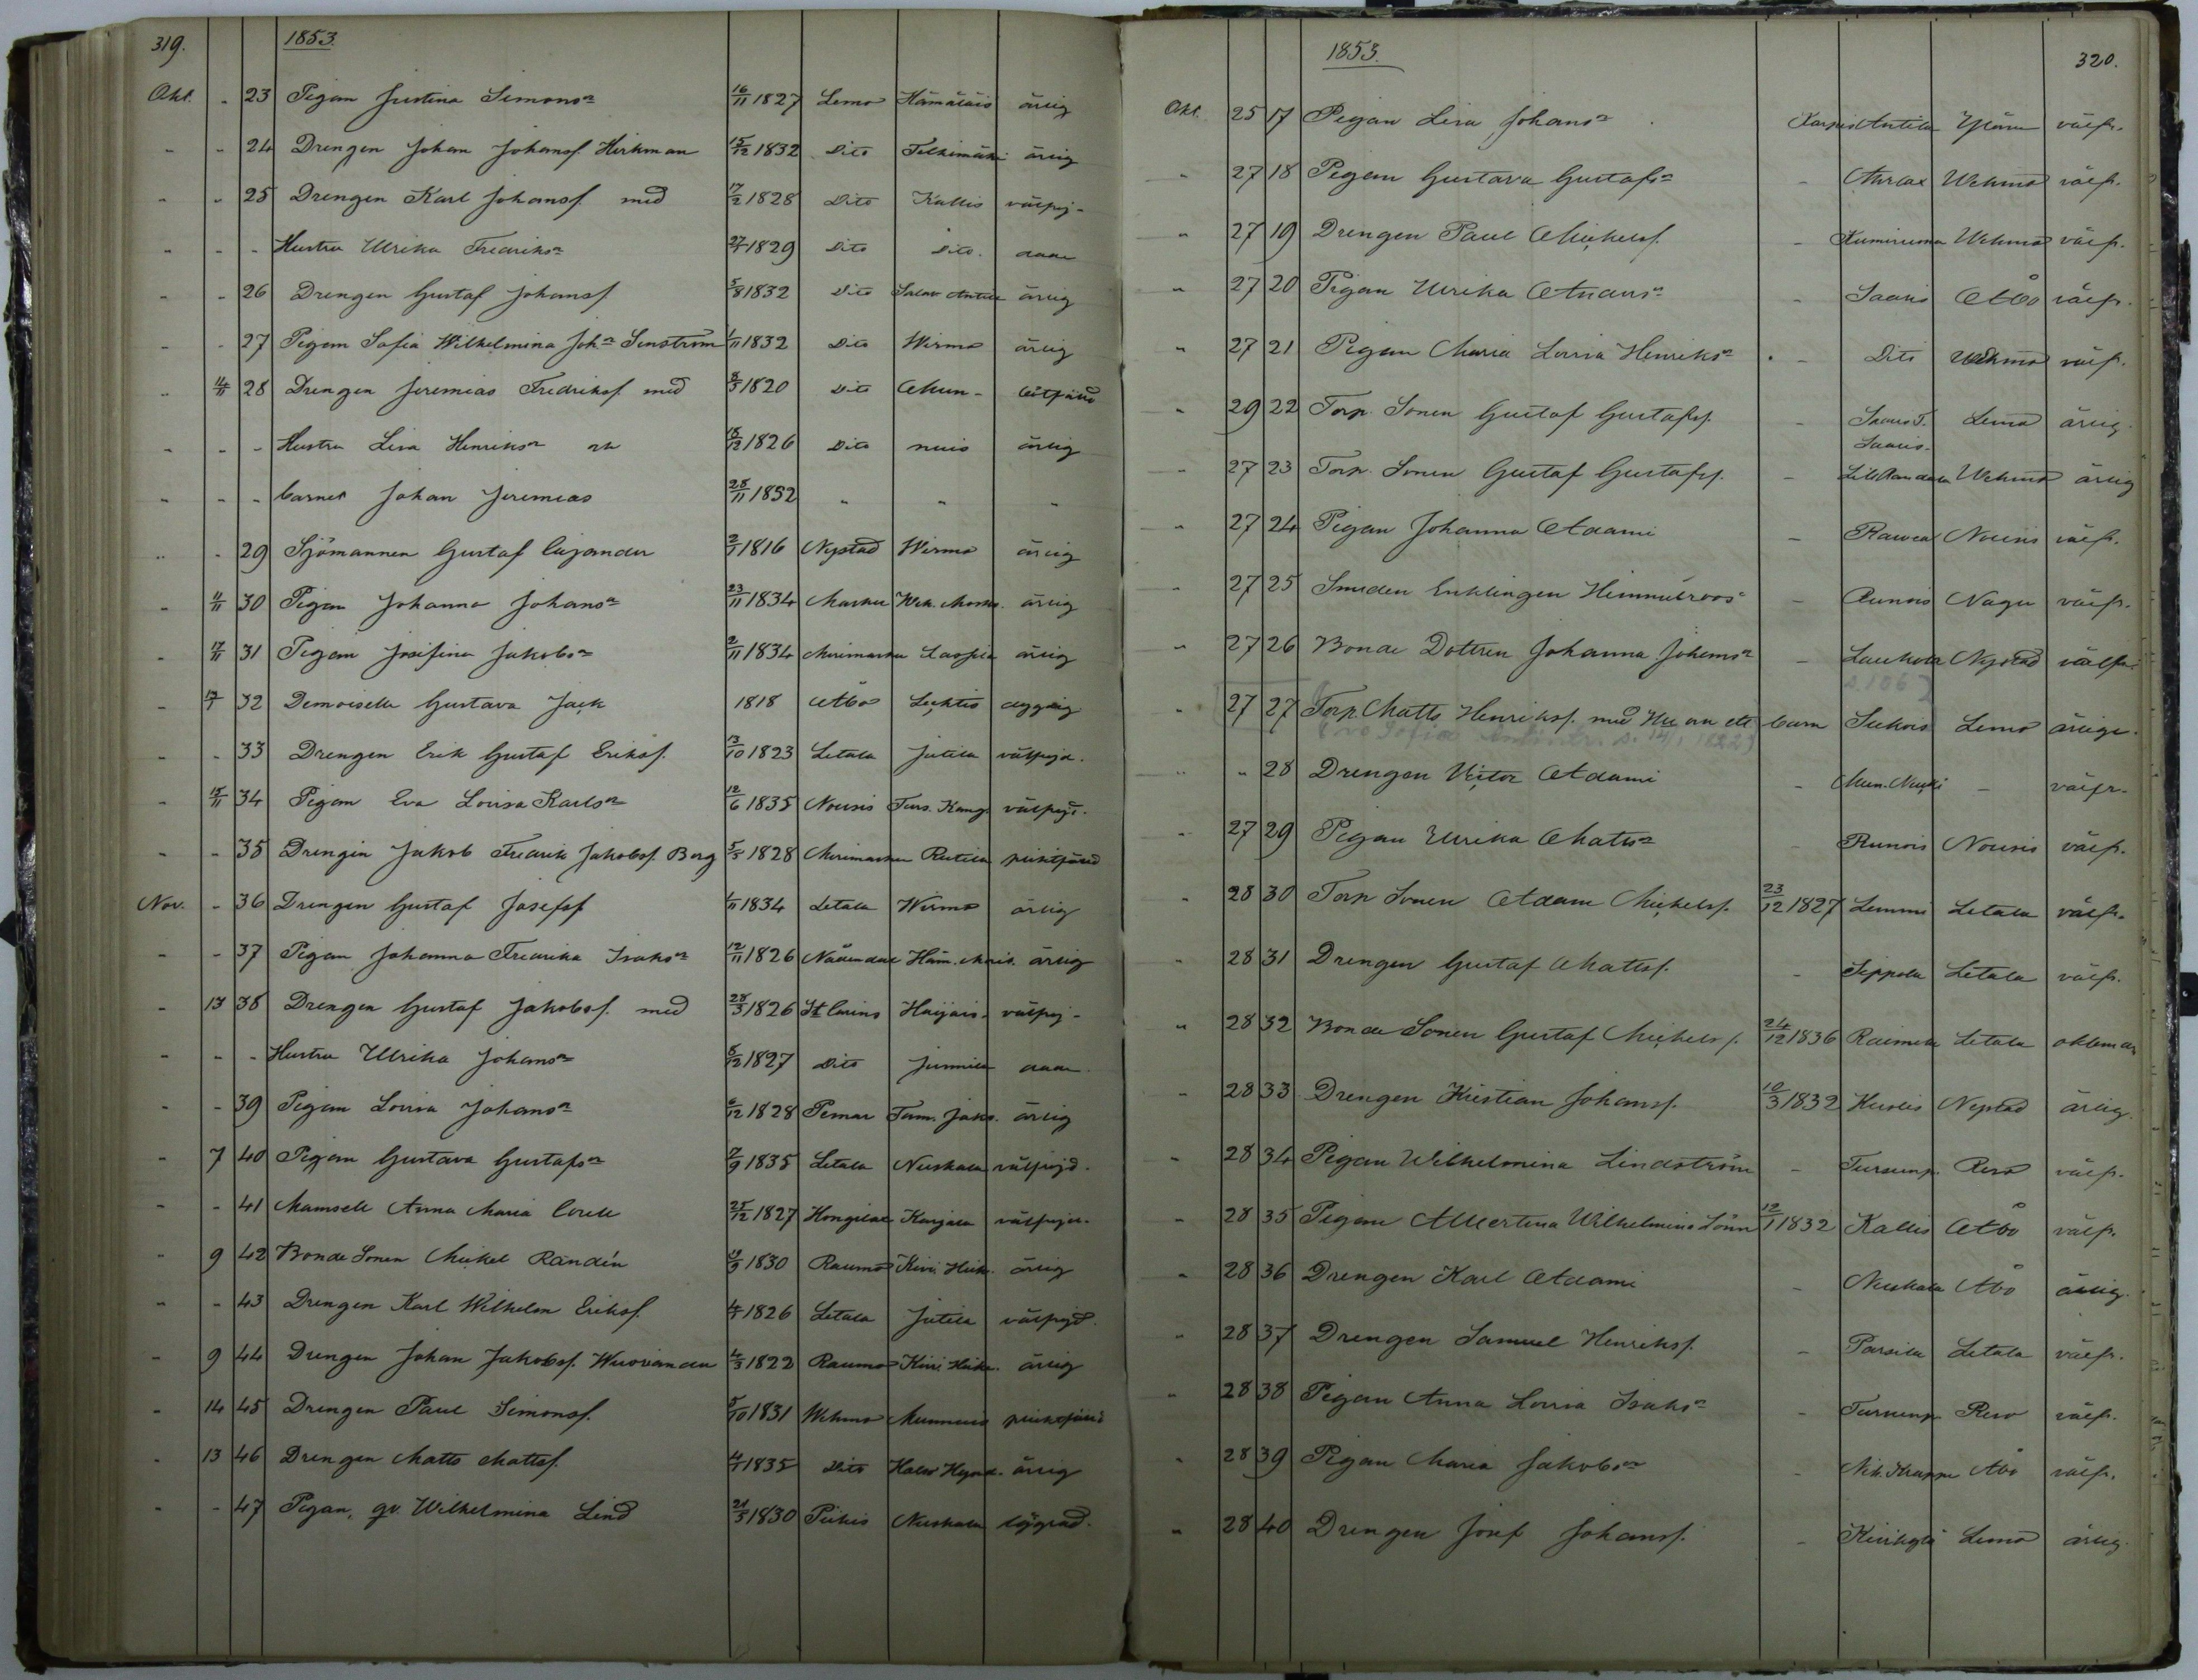 319. 1853.
Okt. - 23 Pigan Justina Simonsr 16/11 1827 Lemo Hämäläis ärlig
- - 24 Drengen Johan Johansf. Hirkman 15/12 1832 Dito Telkimäki ärlig
- - 25 Drengen Karl Johansf. med 17/2 1828 Dito Kallis välfrej-
- - - Hustru Ulrika Fredriksr 27/7 1829 Dito Dito. dade
- - 26 Drengen Gustaf Johansf 5/8 1832 Dito Salav Antila ärlig
- - 27 Pigan Sofia Wilhelmina Johr Senström 1/11 1832 Dito Wirmo ärlig
- 11/11 28 Drengen Jeremias Fredriksf. med 8/3 1820 Dito Mun-
- - - Hustru Lisa Henriksr och 18/12 1826 Dito nuis ärlig
- - - barnet Johan Jeremias 28/11 1852 - - -
- - 29 Sjömannen Gustaf Cajander 2/7 1816 Nystad Wirmo ärlig
- 11/11 30 Pigan Johanna Johansr 23/11 1834 Masku Wek. Mosko. ärlig
- 17/11 31 Pigan Josefina Jakobsr 2/11 1834 Merimasku Laspia ärlig
- 17/7 32 Demoiselle Gustava Jack 1818 Åbo Lechtis dygdig
- - 33 Drengen Erik Gustaf Eriksf. 13/10 1823 Letala Jutila välfrejd.
- 15/11 34 Pigan Eva Lovisa Karlsr 12/6 1835 Nousis Turs. Kang. välfrejd.
- - 35 Drengen Jakob Fredrik Jakobsf. Berg 5/5 1828 Merimasku Rutila
Nov. - 36 Drengen Gustaf Josefsf 1/11 1834 Letala Wirmo ärlig
- - 37 Pigan Johanna Fredrika Isaksr 12/11 1826 Nådendal Häm. Mais. ärlig
- 13 38 Drengen Gustaf Jakobsf. med 28/3 1826 St Carins Haijais. välfrej-
- - - Hustru Ulrika Johansr 5/12 1827 Dito Junnila dade.
- - 39 Pigan Lovisa Johansr 6/12 1828 Pemar Tam. Jako. ärlig
- 7 40 Pigan Gustava Gustafsr 7/9 1835 Letala Nuskala välfrejd.
- - 41 Mamsell Anna Maria 25/12 1827 Hongilax Karjala välfrejd.
- 9 42 Bonde Sonen Mickel Randén 19/9 1830 Raumo Kivi. Heik. ärlig
- - 43 Drengen Karl Wilhelm Eriksf. 4/5 1826 Letala Jutila välfrejd.
- 9 44 Drengen Johan Jakobsf. 4/3 1822 Raumo Kivi. Heik. ärlig
- 14 45 Drengen Paul Simonsf. 5/10 1831 Wehmo Munnuis
- 13 46 Drengen Matts Mattsf. 4/1 1835 Dito Halso Hynd. ärlig
- - 47 Pigan, qv. Wilhelmina Lind 21/5 1830 Pickis Nuskala lägrad.
1853. 320.
Okt. 25 17 Pigan Lisa Johansr. Karpis Antila Yläne välfr.
- 27 18 Pigan Gustava Gustafsr - Wehmo välfr.
- 27 19 Drengen Paul Michelsf. - Kumiruma Wehmo välfr.
- 27 20 Pigan Ulrika - Saaris Åbo välfr.
- 27 21 Pigan Maria Lovisa Henriksr - Dito Wehmo välfr.
- 29 22 Torp. Sonen Gustaf Gustafsf. - Saaris T. Saaris. Lemo ärlig.
- 27 23 Torp. Sonen Gustaf Gustafsf. - Lill Randala Wehmo ärlig
- 27 24 Pigan Johanna Adami - Nousis välfr.
- 27 25 Smeden Enklingen Himmelroos - Aunois Nagu välfr.
- 27 26 Bonde Dottren Johanna Johansr - Laukola Nystad välfr.
s.106
- 27 27 Torp. Matts Henriksf. med Hu och ett barn Lemo ärliga.
- - 28 Drengen Victor Adami - Mun. Nuki - välfr.
- 27 29 Pigan Ulrika Mattsr - Runois Nousis välfr.
- 28 30 Torp Sonen Adam Michelsf. 23/12 1827 Lemmi Letala välfr.
- 28 31 Drengen Gustaf Mattsf. - Seppola Letala välfr.
- 28 32 Bonde Sonen Gustaf Michelsf. 24/12 1836 Raimela Letala oklandr
- 28 33 Drengen Kristian Johansf. 10/3 1832 Huolis Nystad ärlig.
- 28 34 Pigan Wilhelmina Lindström - Tursunp. Reso välfr.
- 28 35 Pigan Albertina Wilhelmina Lönn 12/1 1832 Kallis Åbo välfr.
- 28 36 Drengen Karl Adami - Nuskala Åbo ärlig.
- 28 37 Drengen Samuel Henriksf. - Parsila Letala välfr.
- 28 38 Pigan Anna Lovisa Isaksr - Tursunp. Reso välfr.
- 28 39 Pigan Maria Jakobsr - Nih. Krappe Åbo välfr.
- 28 40 Drengen Josef Johansf. - Kivikylä Lemo ärlig.